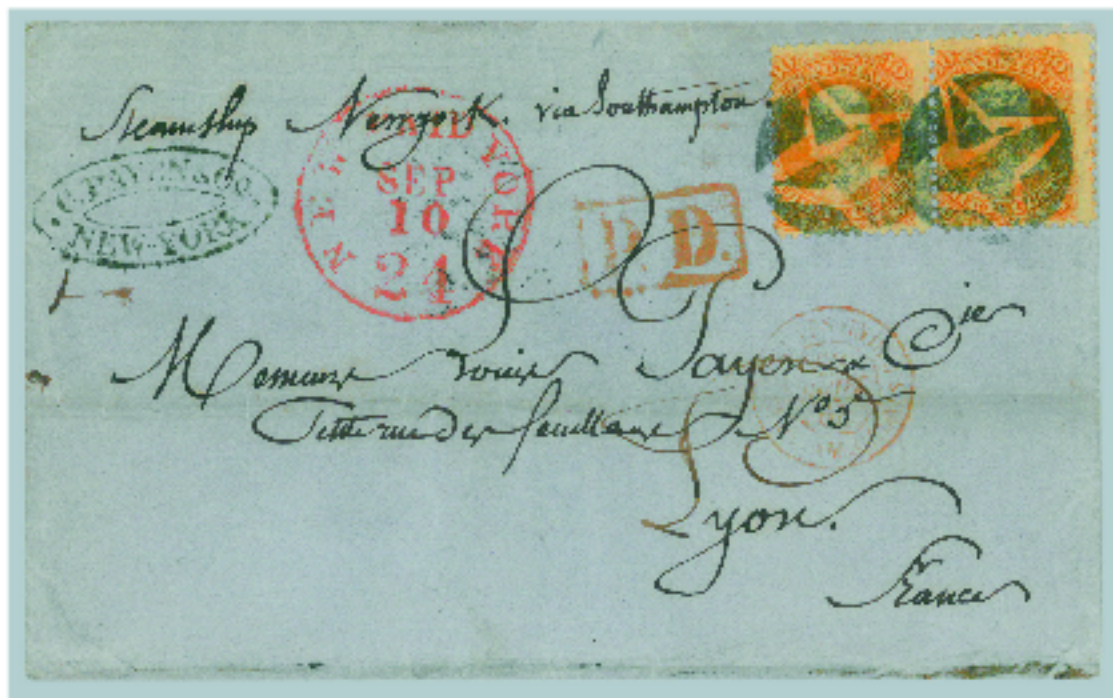 Steamship Newyork. via Southampton.
C. PAYEN & CO
NEW-YORK
NEW PAID YORK
SEP
10
24
P. D.
Payen & Cie
Petite rue des feuillans No 5
Lyon.
France